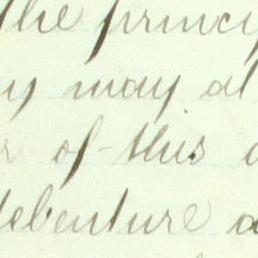 the princi
may at
of this
debenture a